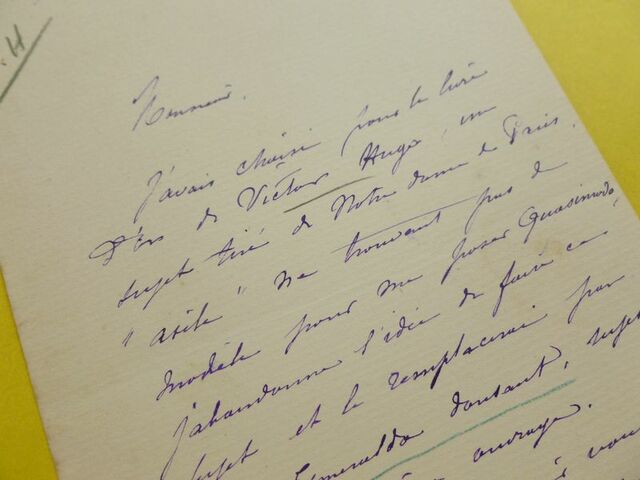 H
Monsieur.
J'avais choisi pour le livre
d'or de Victor Hugo, un
sujet tiré de Notre dame de Paris.
"asile" ne trouvant pas de
modèle pour me poser Quasimodo,
j'abandonne l'idée de faire ce
sujet et le remplacerai par
Esmeralda dansant, sujet
ouvrage.
vous